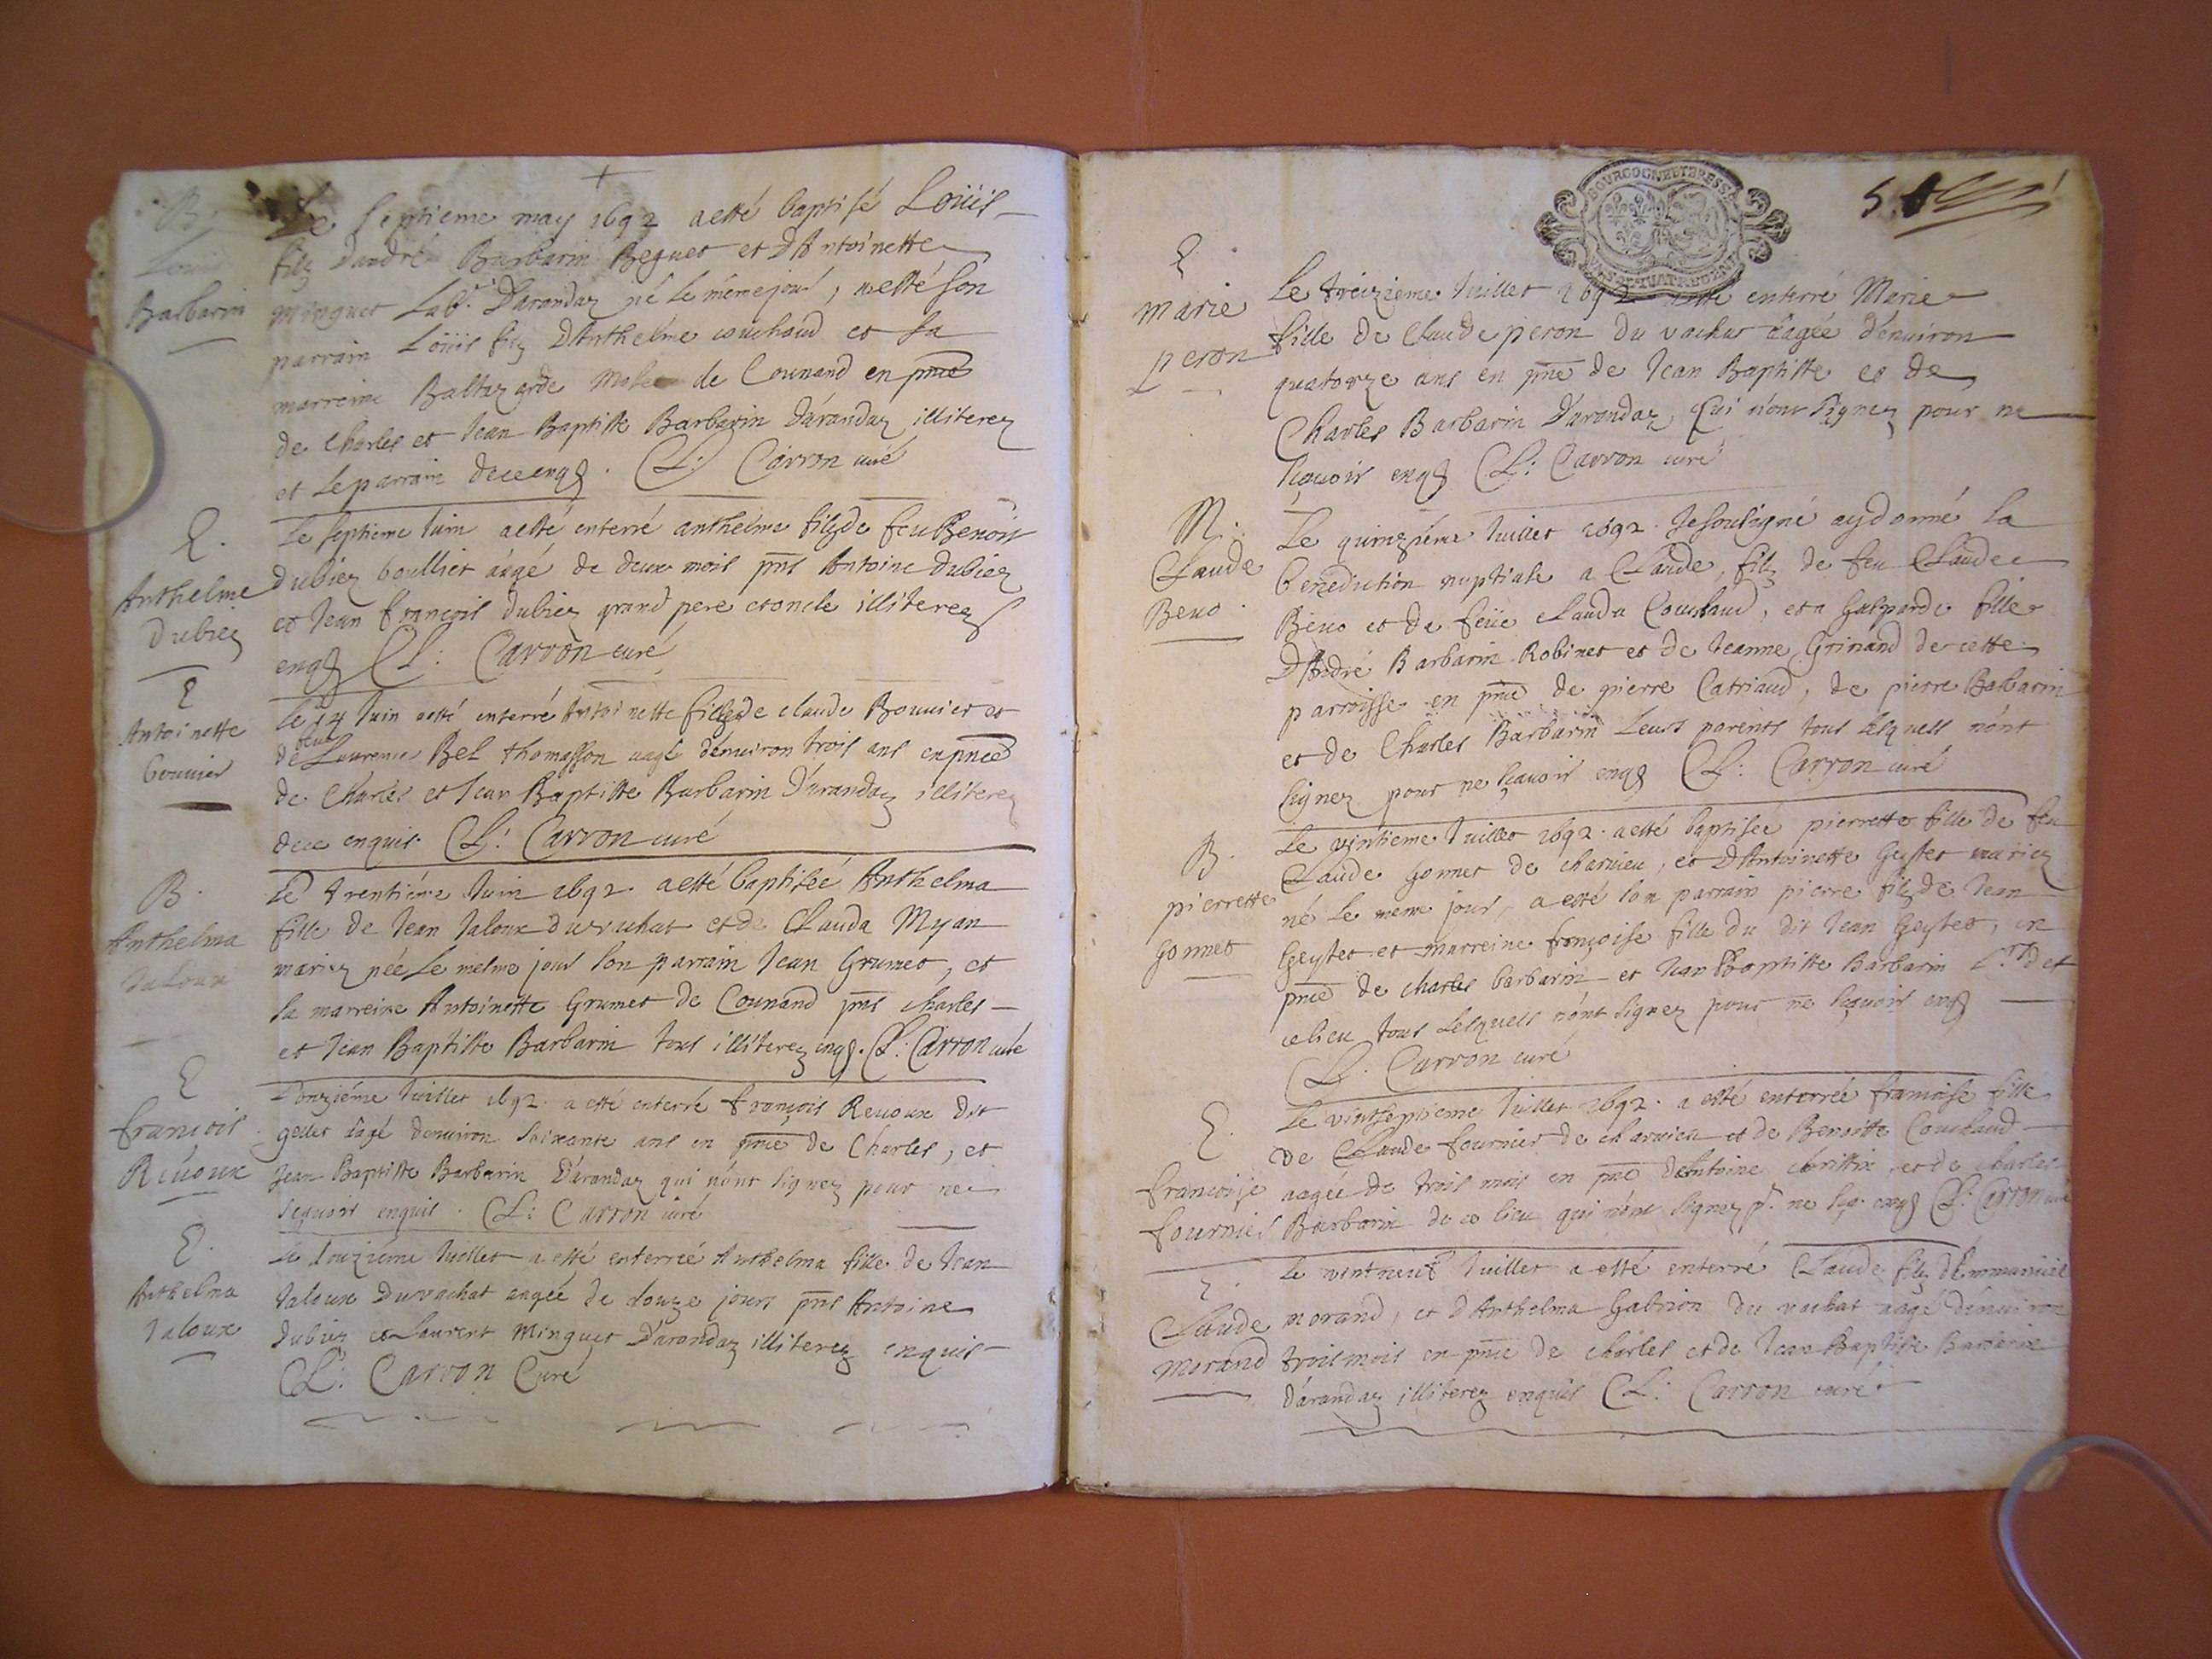 B.
Louis
Barbarin
Le septieme may 1692 a esté baptisé Loüis
filz d'andré Barbarin Beguet et D'Antoinette
Minguet Lab.r D'arandaz né le méme jour, a esté son
parrain Loüis filz D'Anthelme couchaud et sa
marreine Baltazarde de Counand en pnce
de Charles et Jean Baptiste Barbarin D'arandaz illiterez
et le parrain de ce enqs. CL: Carron curé
E.
Anthelme
Dubiez
Le septieme Juin a esté enterré anthelme filz de feu Benoit
Dubiez boulliet áagé de deux mois pns Antoine Dubiez
et Jean françois Dubiez grand pere et oncle illiterez
enqs CL: Carron curé
E
Antoinette
bouvier
Le 14 Juin esté enterré Antoinette fille de claude Bouvier et
de feue Laurence Bel thomasson aagé d'enuiron trois ans en pnce
de Charles et Jean Baptiste Barbarin D'arandaz illiterez
de ce enquis. CL: Carron curé
B.
Anthelma
Jaloux
Le trentiéme Juin 1692. a esté baptisée Anthelma
fille de Jean Jaloux du vachat et de Clauda Myan
mariez née le mesme jour son parrain Jean Grumet, et
sa marreine Antoinette Grumet de Counand pns charles
et Jean Baptiste Barbarin tous illiterez enqs. CL: Carron curé
E
francois
Réuoux
L'onziéme Juillet 1692. a esté enterré françois Reuoux dit
gellet áagé denuiron soixante ans en pnce de Charles, et
Jean Baptiste Barbarin D'arandaz qui n'ont signez pour ne
sçauoir enquis. CL: Carron curé
E.
Anthelma
Jaloux
Le douziéme Juillet a esté enterreé Anthelma fille de Jean
Jaloux Du vachat aagée de douze jours pns Antoine
Dubiez et Laurent Minguet D'arandaz illiterez enquis
CL: Carron Curé
BOURGOGNE ET BRESSE
5.
E.
marie
peron
Le treizieme Juillet 1692 esté enterré Marie
fille de Claude peron du vachat áagée d'enuiron
quatorze ans en pnce de Jean Baptiste et de
Charles Barbarin D'arandaz, Qui n'ont signez pour ne
sçauoir enqs CL: Carron curé
M.
Claude
Beuo.
Le quinziéme Juillet 1692. Je soubsigné ay donné la
benediction nuptiale a Claude, filz de feu Claude
Béuo et de feüe clauda Couchaud, et a Gasparde fille
D'André Barbarin Robinet et de Jeanne Grinand de cette
parroisse en pnce de pierre Catriaud, de pierre Barbarin
et de Charles Barbarin Leurs parents tous lesquels n'ont
signez pour ne sçauoir enqs CL: Carron curé
B.
pierrette
Gonnet
Le vintieme Juillet 1692. a esté baptisée pierrette fille de feu
Claude Gonnet de charuieu, et D'Antoinette Geystet mariez
né le meme jour, a esté son parrain pierre filz de Jean
Geystet et marreine françoise fille du dit Jean Geystet, en
pnce de charles barbarin et Jean Baptiste Barbarin
ce lieu tous Lesquels n'ont signez pour ne sçauoir enqs
CL. Carron curé
E.
françoise
fournier
Le vintseptieme Juillet 1692. a esté enterrée francoise fille
de Claude fournier de charuieu et de Benoitte Couchaud
aagée de trois mois en pnce d'Antoine christin et de charles
Barbarin de ce lieu qui n'ont signez p.r ne sça. enqs CL: Carron curé
E.
Claude
morand
Le vintneuf Juillet a esté enterré Claude filz d'Emmanuel
morand, et d'Anthelma Gabrion du vachat aagé d'enuiron
trois mois en pnce de charles et de Jean Baptiste Barbarin
D'arandaz illiterez enquis CL: Carron curé